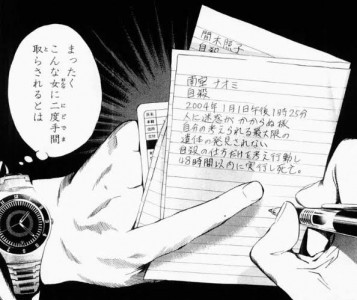 まったく
こんな女に二度手間
取らされるとは
間木照子
自殺
南空ナオミ
自殺
2004年1月1日午後1時25分
人に迷惑がかからぬ様
自分の考えられる最大限の
遺体の発見されない
自殺の仕方だけを考え行動し
48時間以内に実行し死亡。